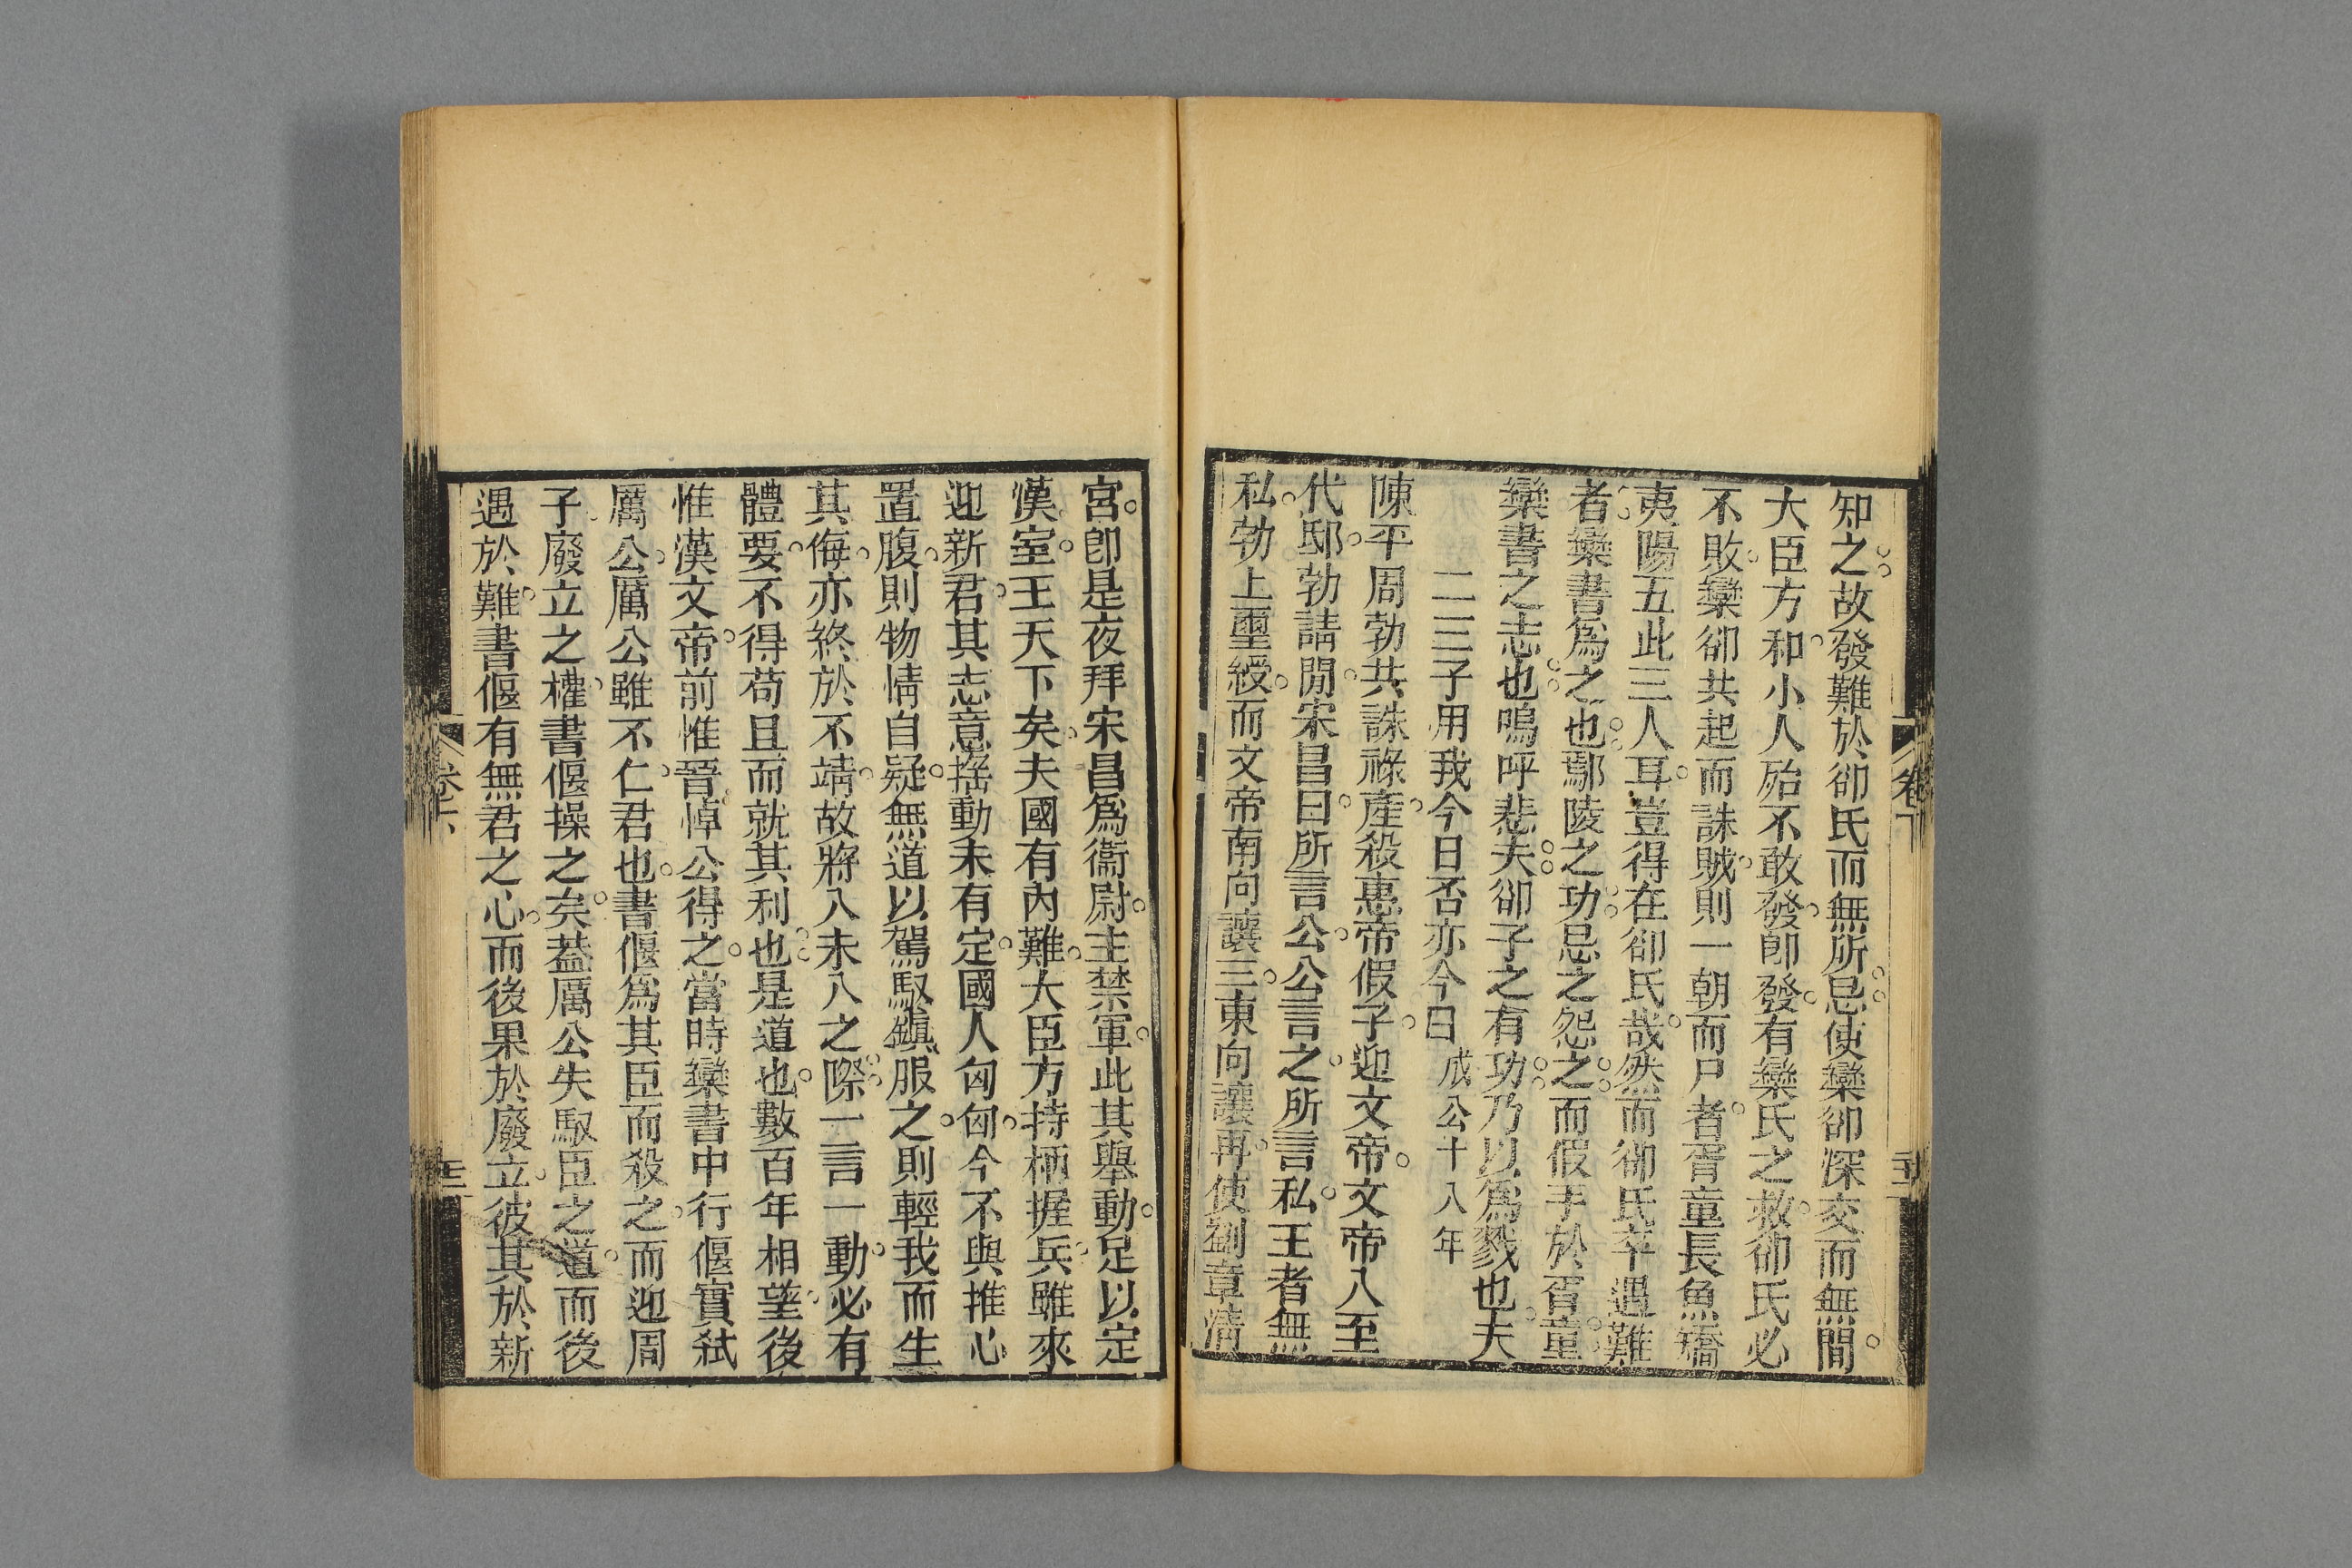 知之故發難於郤氏而無所忌使欒郤深交而無間
大臣方和小人殆不敢發卽發有欒氏之救郤氏必
不敗欒郤共起而誅賊則一朝而尸者胥童長魚矯
夷陽五此三人耳豈得在郤氏哉然而郤氏卒遇難
者欒書爲之也鄢陵之功忌之怨之而假手於胥童
欒書之志也嗚呼悲夫郤子之有功乃以爲戮也夫
二三子用我今日否亦今日成公十八年
陳平周勃共誅祿產殺惠帝假子迎文帝文帝入至
代邸勃請間宋昌曰所言公公言之所言私王者無
私勃上璽綬而文帝南向讓三東向讓再使劉章清
宮卽是夜拜宋昌爲衞尉主禁軍此其舉動足以定
漢室王天下矣夫國有內難大臣方持柄握兵雖來
迎新君其志意搖動未有定國人匈匈今不與推心
置腹則物情自疑無道以駕馭鎮服之則輕我而生
其侮亦終於不靖故將入未入之際一言一動必有
體要不得苟且而就其利也是道也數百年相望後
惟漢文帝前惟晉悼公得之當時欒書中行偃實弑
厲公厲公雖不仁君也書偃爲其臣而殺之而迎周
子廢立之權書偃操之矣葢厲公失馭臣之道而後
遇於難書偃有無君之心而後果於廢立彼其於新